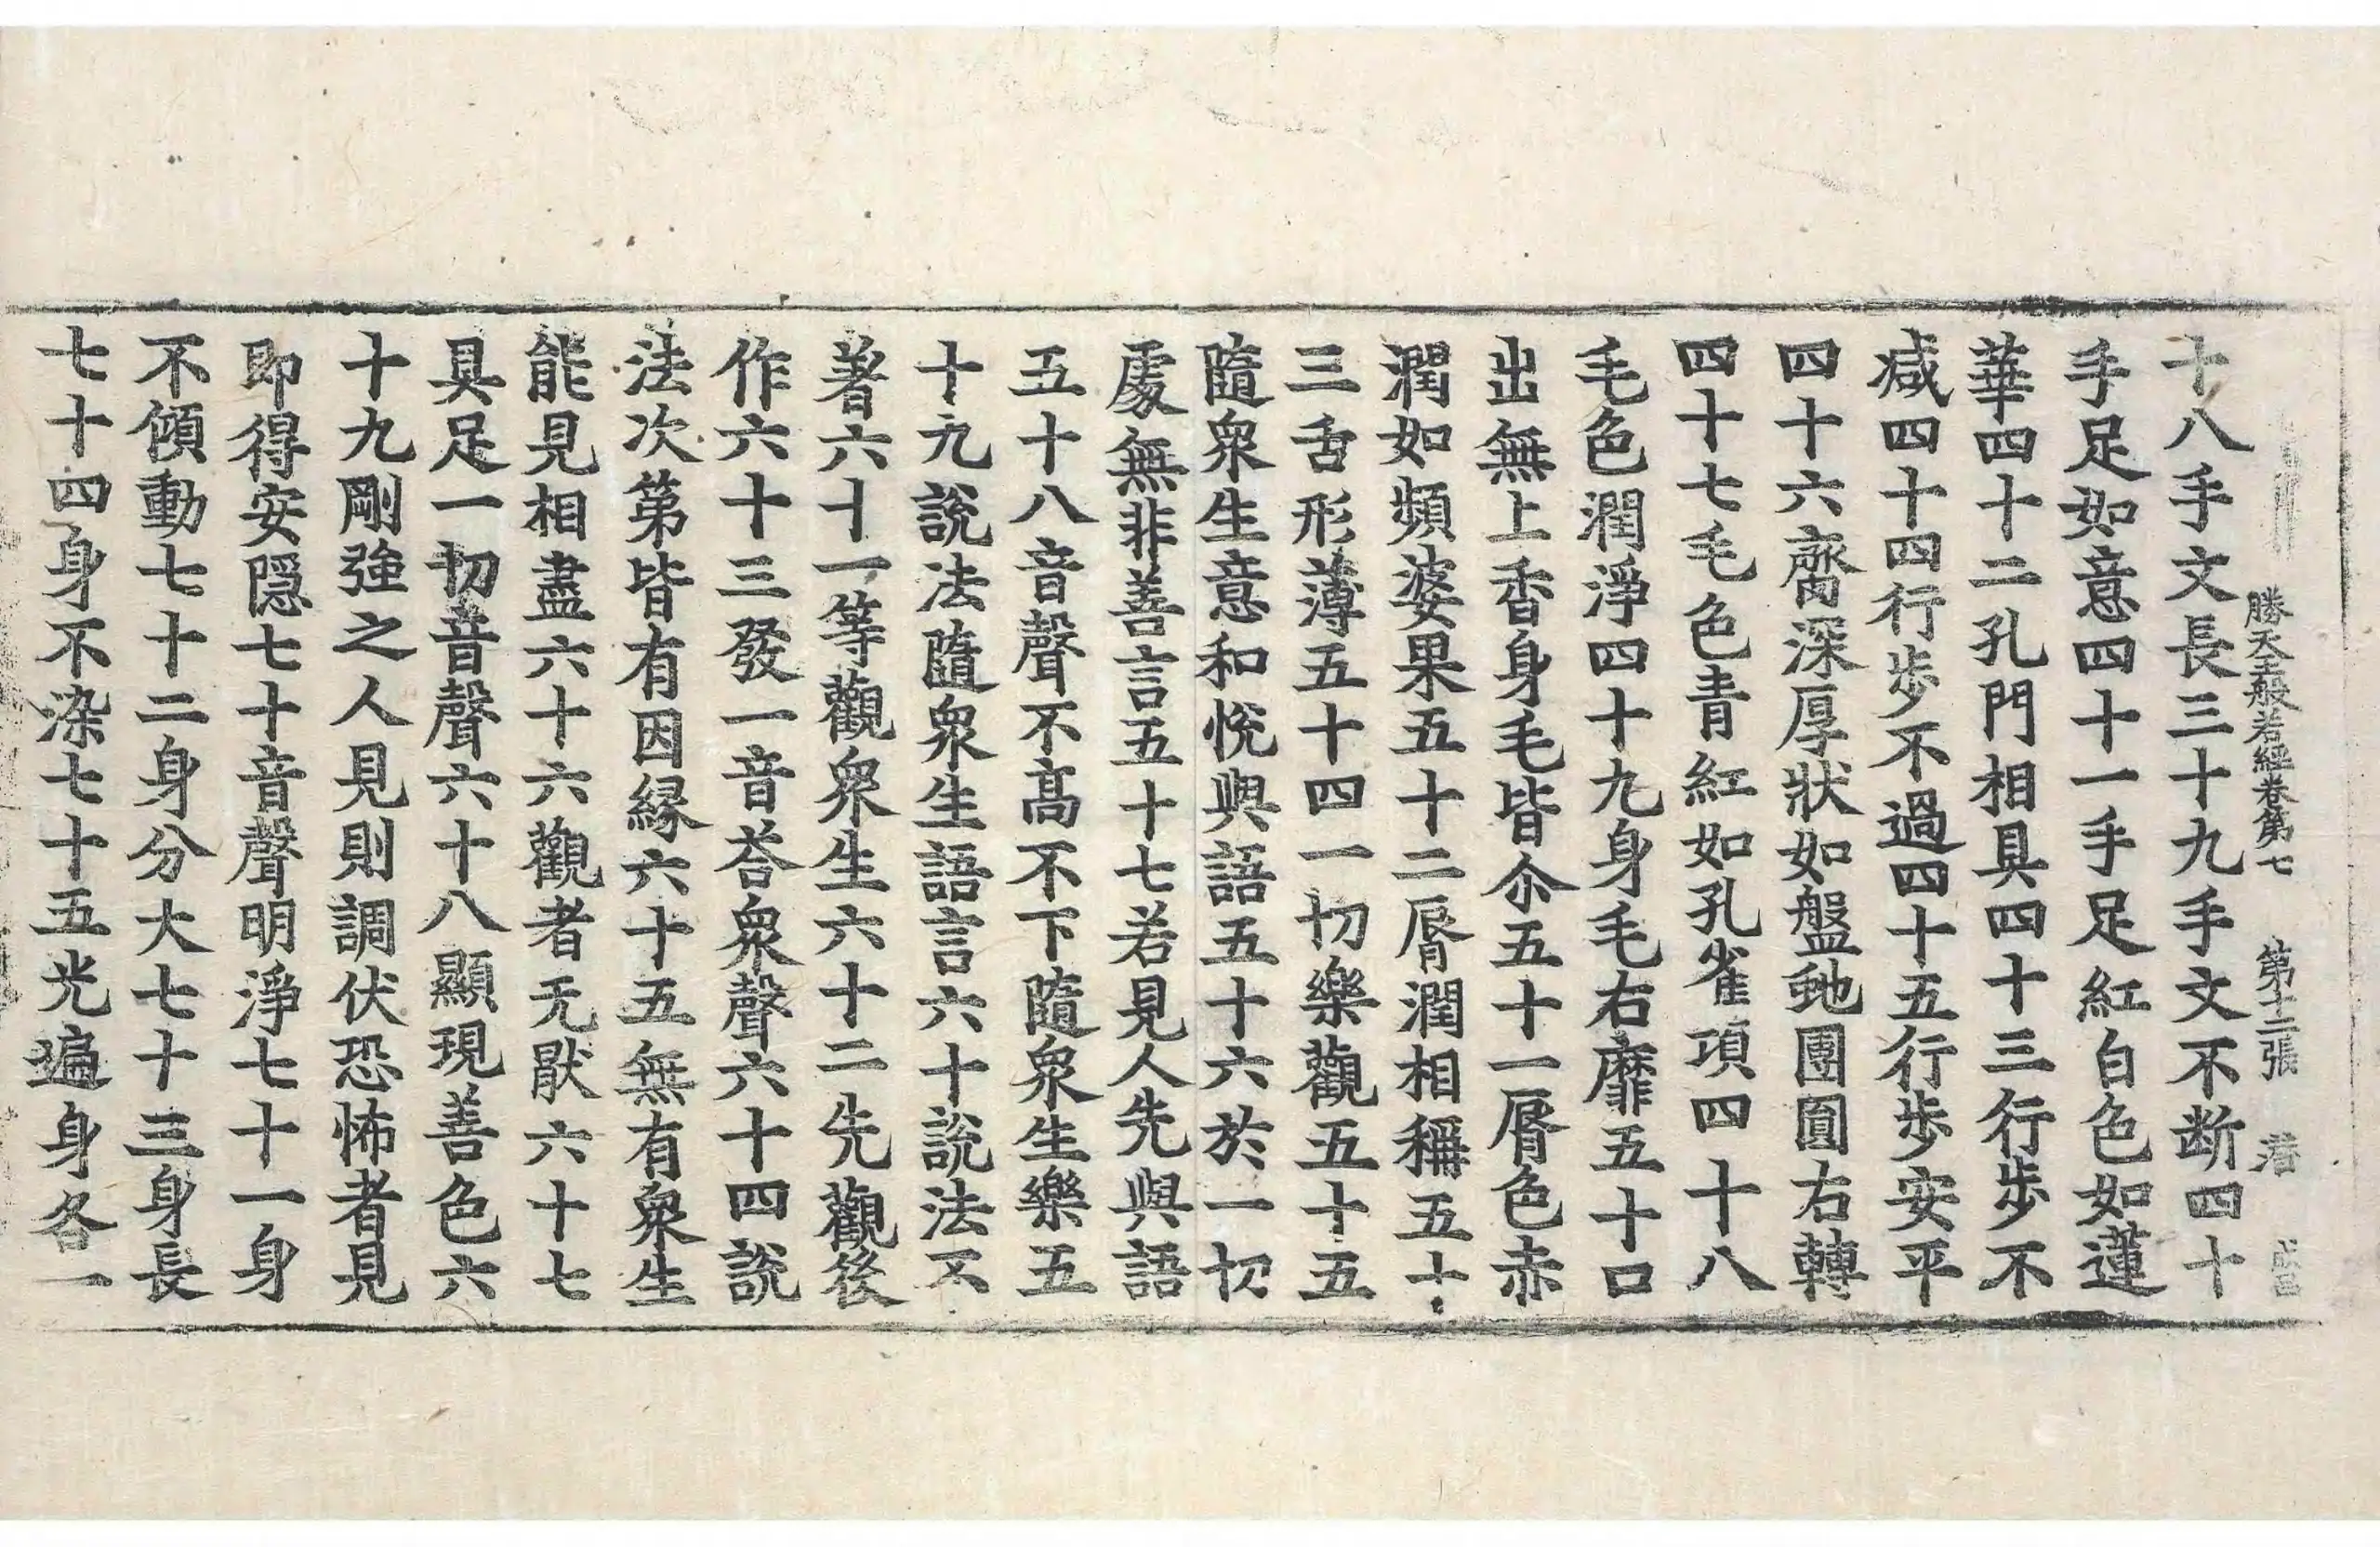 勝天王般若經卷第七 第十二張 㵙
十八手文長三十九手文不断四十
手足如意四十一手足紅白色如蓮
華四十二孔門相具四十三行步不
减四十四行步不過四十五行步安平
四十六齋深厚狀如盤虵團圓右轉
四十七毛色青紅如孔雀項四十八
毛色潤淨四十九身毛右靡五十口
出無上香身毛皆尒五十一脣色赤
潤如頻婆果五十二脣潤相稱五十
三舌形薄五十四一切樂觀五十五
隨衆生意和悅與語五十六於一切
處無非善言五十七若見人先與語
五十八音聲不高不下隨衆生樂五
十九說法隨衆生語言六十說法不
著六十一等觀衆生六十二先觀後
作六十三發一音荅衆聲六十四說
法次第皆有因縁六十五無有衆生
能見相盡六十六觀者无猒六十七
具足一切音聲六十八顯現善色六
十九剛強之人見則調伏恐怖者見
即得安隱七十音聲明淨七十一身
不傾動七十二身分大七十三身長
七十四身不染七十五光遍身各一